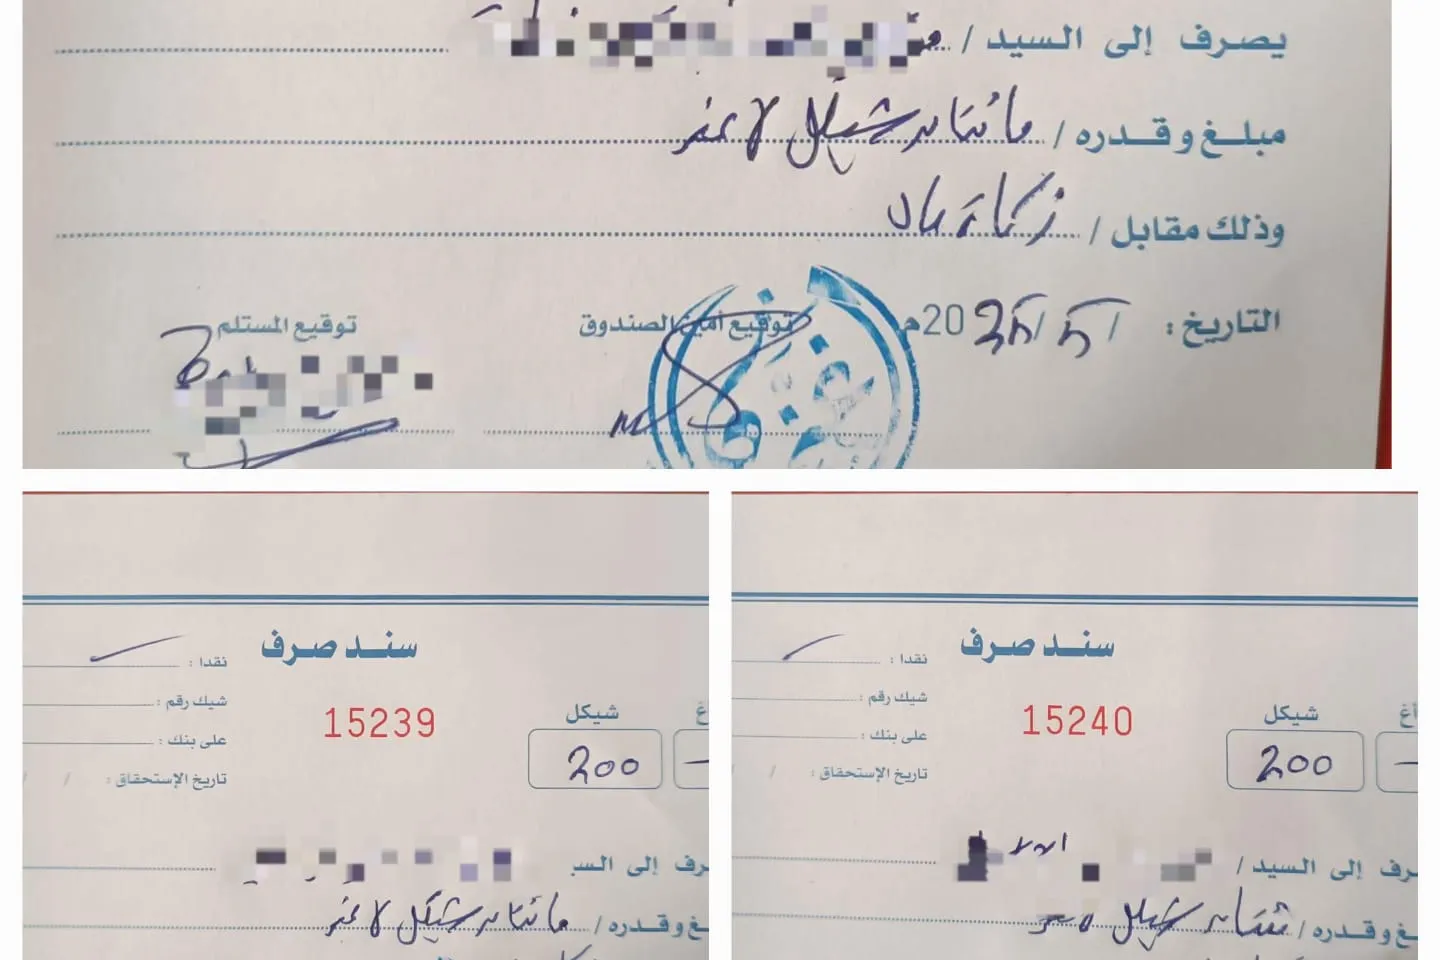 يصرف إلى السيد /
مبلغ وقدره / مائتان شيكل لا غير
وذلك مقابل / زكاة مال
التاريخ : / 5 / 2025م
توقيع أمين الصندوق
توقيع المستلم
سند صرف
نقدا :
شيك رقم :
15239
شيكل
على بنك :
200
تاريخ الإستحقاق : / /
رف إلى السي
غ وقدره / مائتان شيكل لا غير
سند صرف
نقدا :
شيك رقم :
15240
شيكل
على بنك :
200
تاريخ الإستحقاق : / /
رف إلى السيد /
غ وقدره / شيكل